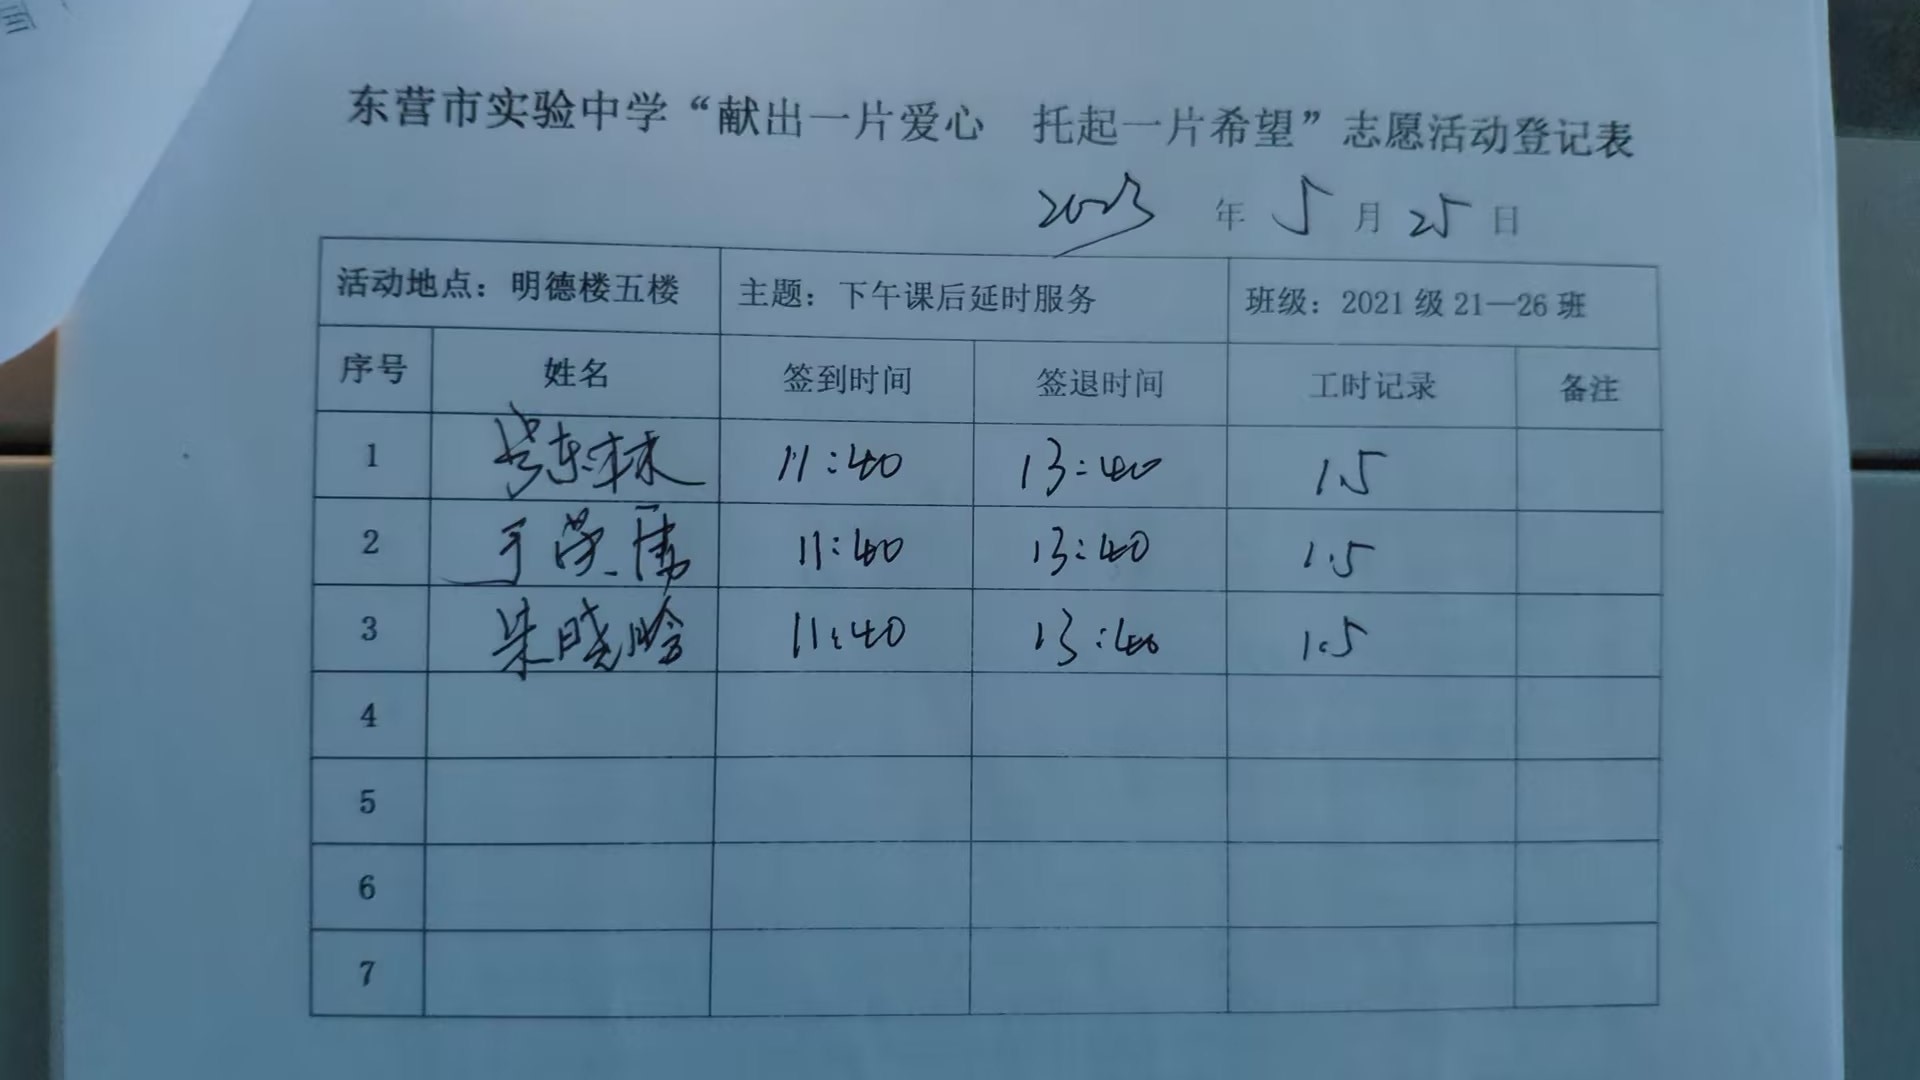 东营市实验中学“献出一片爱心 托起一片希望”志愿活动登记表
2023 年 5 月 25 日
活动地点：明德楼五楼 主题：下午课后延时服务 班级：2021 级 21—26 班
序号 姓名 签到时间 签退时间 工时记录 备注
1 东林 11:40 13:40 1.5
2 于 11:40 13:40 1.5
3 朱晓晗 11:40 13:40 1.5
4
5
6
7